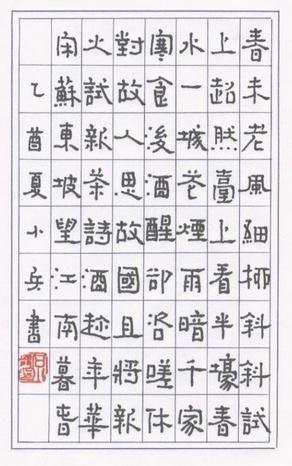 春未老風細柳斜斜試
上超然臺上看半壕春
水一城花煙雨暗千家
寒食後酒醒卻咨嗟休
對故人思故國且將新
火試新茶詩酒趁年華
宋蘇東坡望江南暮春
乙酉夏小兵書